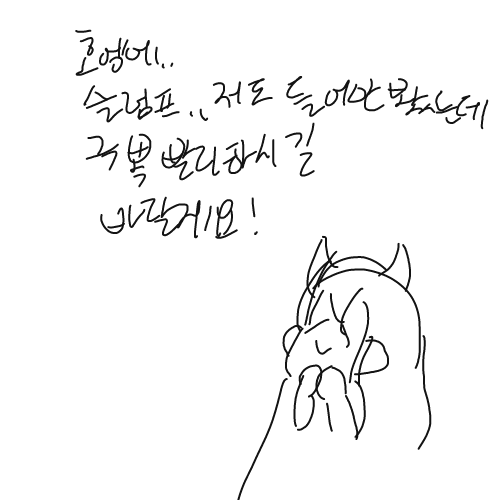 호엥에..
슬럼프.. 저도 들어만 봤는데
극복 빨리하시길
바랄게요!